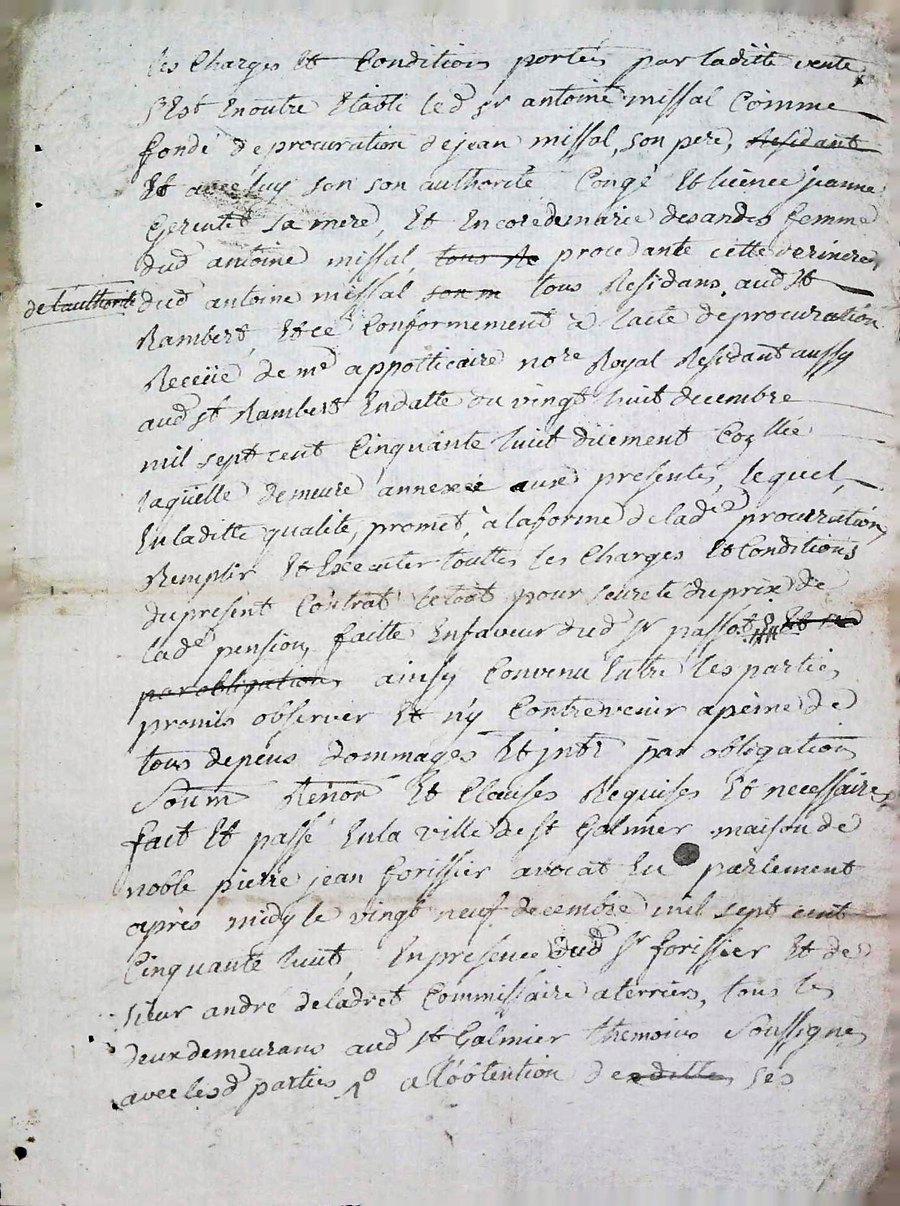 les Charges Et Conditions portées par laditte vente
s'Est Enoutre Etabli led sr antoine missal Comme
fondé deprocuration dejean missal, son pere, Residant
Et avec luy son son authorité Congé Et licence jeanne
sa mere, Et Encore demarie desandes femme
dud antoine missal, tous de procedante cette derniere
de l'authorité dud antoine missal son m tous Residans, aud st
Rambert, Et ce Conformement à l'acte deprocuration
Recüe de me appotticaire nore Royal Residant aussy
aud st Rambert Endatte du vingt huit decembre
mil sept cent Cinquante huit düement Coz llée
laqüelle demeure annexée aux presentes, lequel,
Enladitte qualité, promet, à laforme delade procuration
Remplir Et Executer touttes les Charges Et Conditions
dupresent Contrat letout pour seureté duprix de
lade pension, faitte Enfaveur dud sr passot Et se
par obligation, ainsy Convenu Entre les parties,
promis observer Et n'y Contrevenir apeine de
tous depens dommages Et jntz par obligation,
Soum Renon Et Clauses Requises Et necessaires,
fait Et passé Enla ville de st Galmier maison de
noble pierre jean forissier avocat En parlement
après midy le vingt neuf decembre mil sept cent
Cinquante huit Enpresence dud sr forissier Et de
sieur andré deladret Commissaire aterriers, tous les
deux demeurans aud st Galmier themoins Soussignes
avec lesd parties a l'obtention de ses